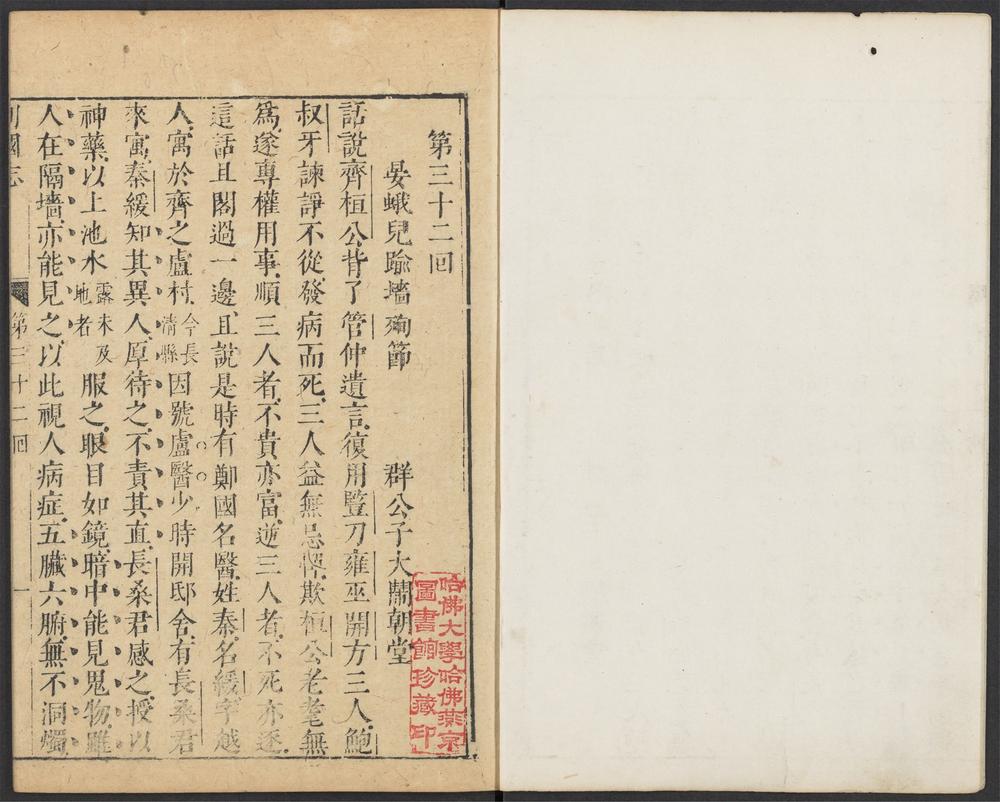 第三十二回
晏蛾兒踰墻殉節　群公子大鬧朝堂
話說齊桓公背了管仲遺言復用豎刀雍巫開方三人鮑
叔牙諫諍不從發病而死三人益無忌憚欺桓公老耄無
爲遂專權用事順三人者不貴亦富逆三人者不死亦逐
這話且閣過一邊且說是時有鄭國名醫姓秦名緩字越
人寓於齊之盧村今長清縣因號盧醫少時開邸舍有長桑君
來寓秦緩知其異人厚待之不責其直長桑君感之授以
神藥以上池水露未及地者服之眼目如鏡暗中能見鬼物雖
人在隔墻亦能見之以此視人病症五臟六腑無不洞燭
列國志　第三十二回　一
哈佛大學哈佛燕京
圖書館珍藏印